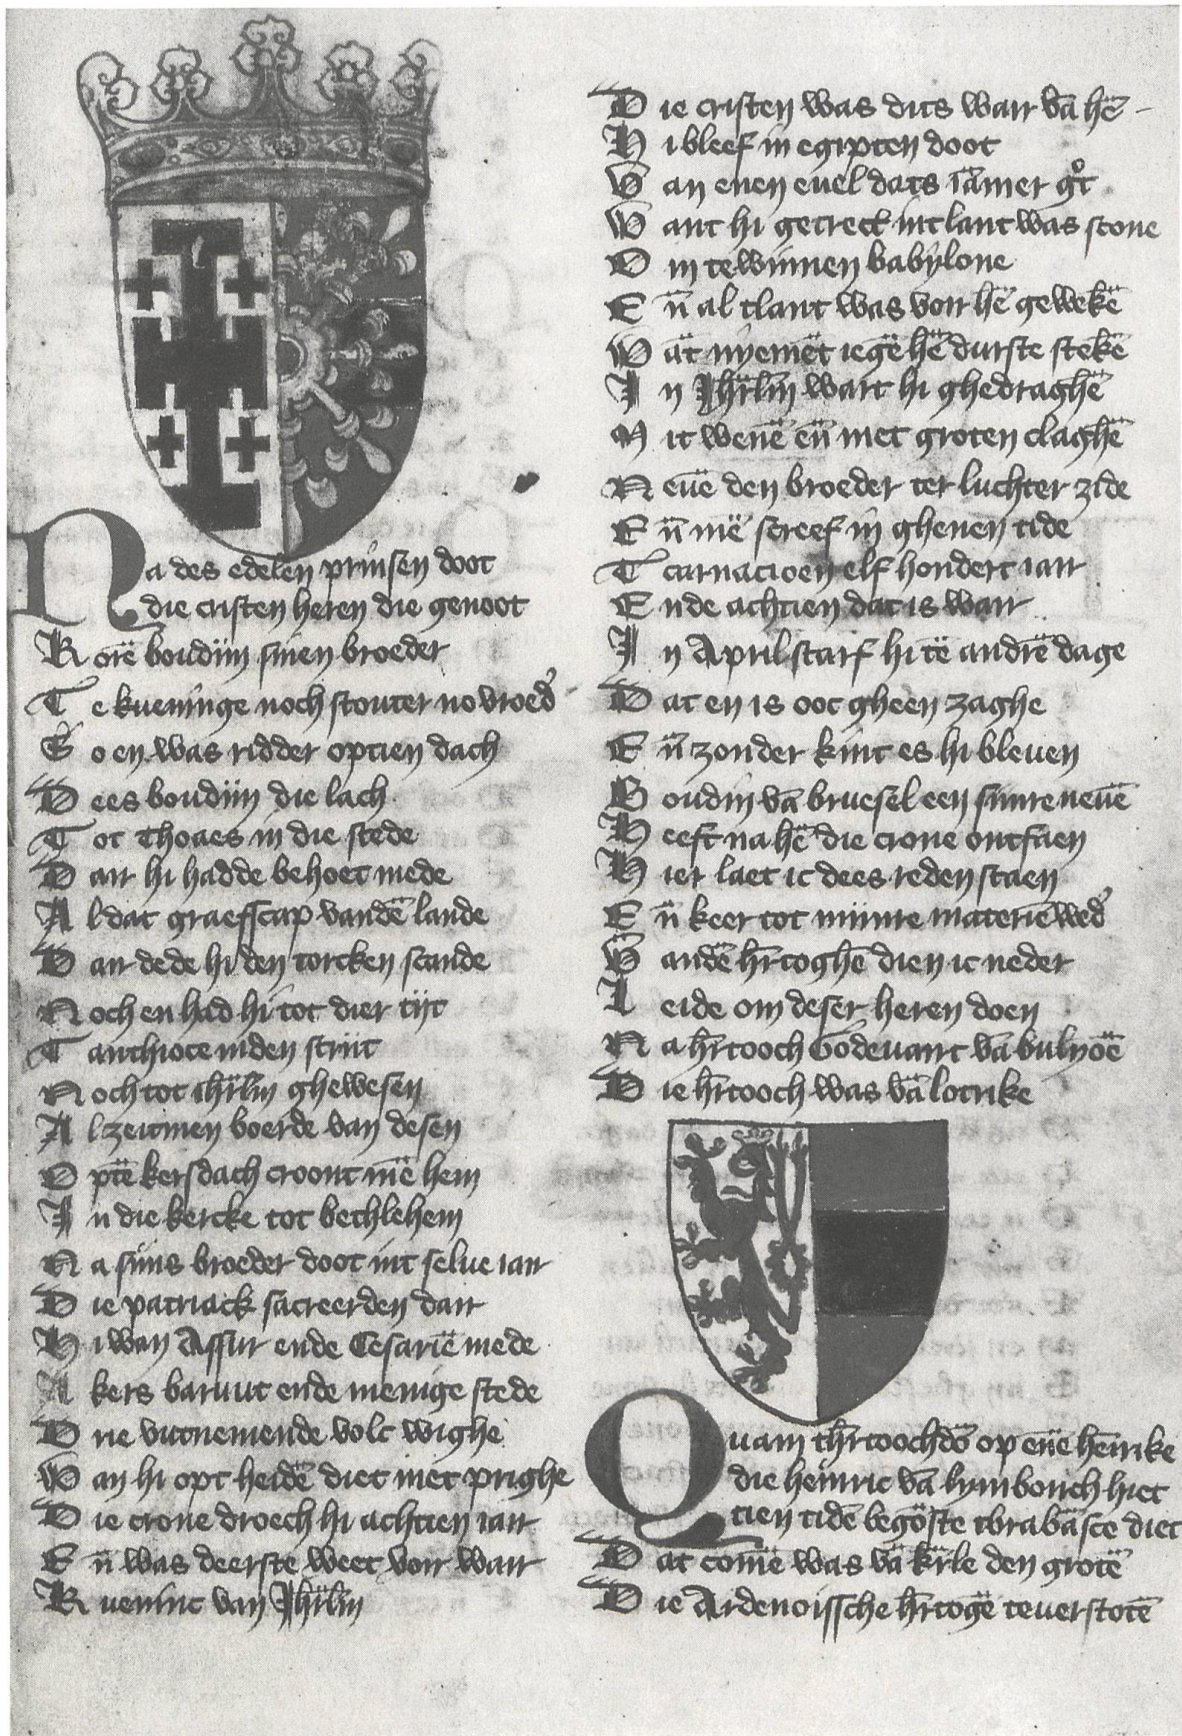 Na des edelen prinsen doot
die cristen heren die genoot
Korē boudijn sinen broeder
Te kueninge noch stouter no vroed̕
So en was ridder optien dach
Dees boudijn die lach
Tot Thoaes in die stede
Dair hi hadde behoet mede
Al dat graefscap vandē lande
Dair dede hi den torcken scande
Noch en had hi tot dier tijt
Tanthiote inden strijt
Noch tot ihrlm̄ ghewesen
Al zeitmen boerde van desen
Optē kersdach croont mē hem
In die kercke tot bethlehem
Na sijns broeder doot int selue iair
Die patriack sacreerden dair
Hi wan Assur ende Cesariē mede
Akers baruut ende menige stede
Die vutnemende volc wighe
Wan hi opt heidē diet met prighe
Die crone droech hi achtien iair
En̄ was deerste weet voir wair
Kueninc van Jhrlm̄
Die cristen was dits wair vā hē
Hi bleef in egipten doot
Van enen euel dats iamer gͦt
Want hi getreck int lant was scone
Om te winnen babylone
En̄ al tlant was voir hē gewekē
Wāt nyemēt iegē hē durste stekē
In Jhrlm̄ wart hi ghedraghē
Mit wenē en̄ met groten claghē
Neuē den broeder ter luchter zide
En̄ mē screef in ghenen tide
Tcarnacioen elf hondert iair
Ende achtien dat is wair
In April starf hi tē andrē dage
Dat en is oot gheen zaghe
En̄ zonder kint es hi bleuen
Boudin vā bruesel een sinre neuē
Heeft na hē die crone ontfaen
Hier laet ic dees reden staen
En̄ keer tot mijnre materiē wed̕
Vandē hr̄toghē dien ic neder
Leide om deser heren doen
Na hr̄tooch Godeuairt vā bulyoē
Die hr̄tooch was vā lotrike
Quam thr̄toochdō op enē henrike
die heinric vā lymborch hiet
tien tidē begōste tbrabāsce diet
Dat comē was vā kr̄le den grotē
Die Ardenoissche hr̄togē teuerstotē